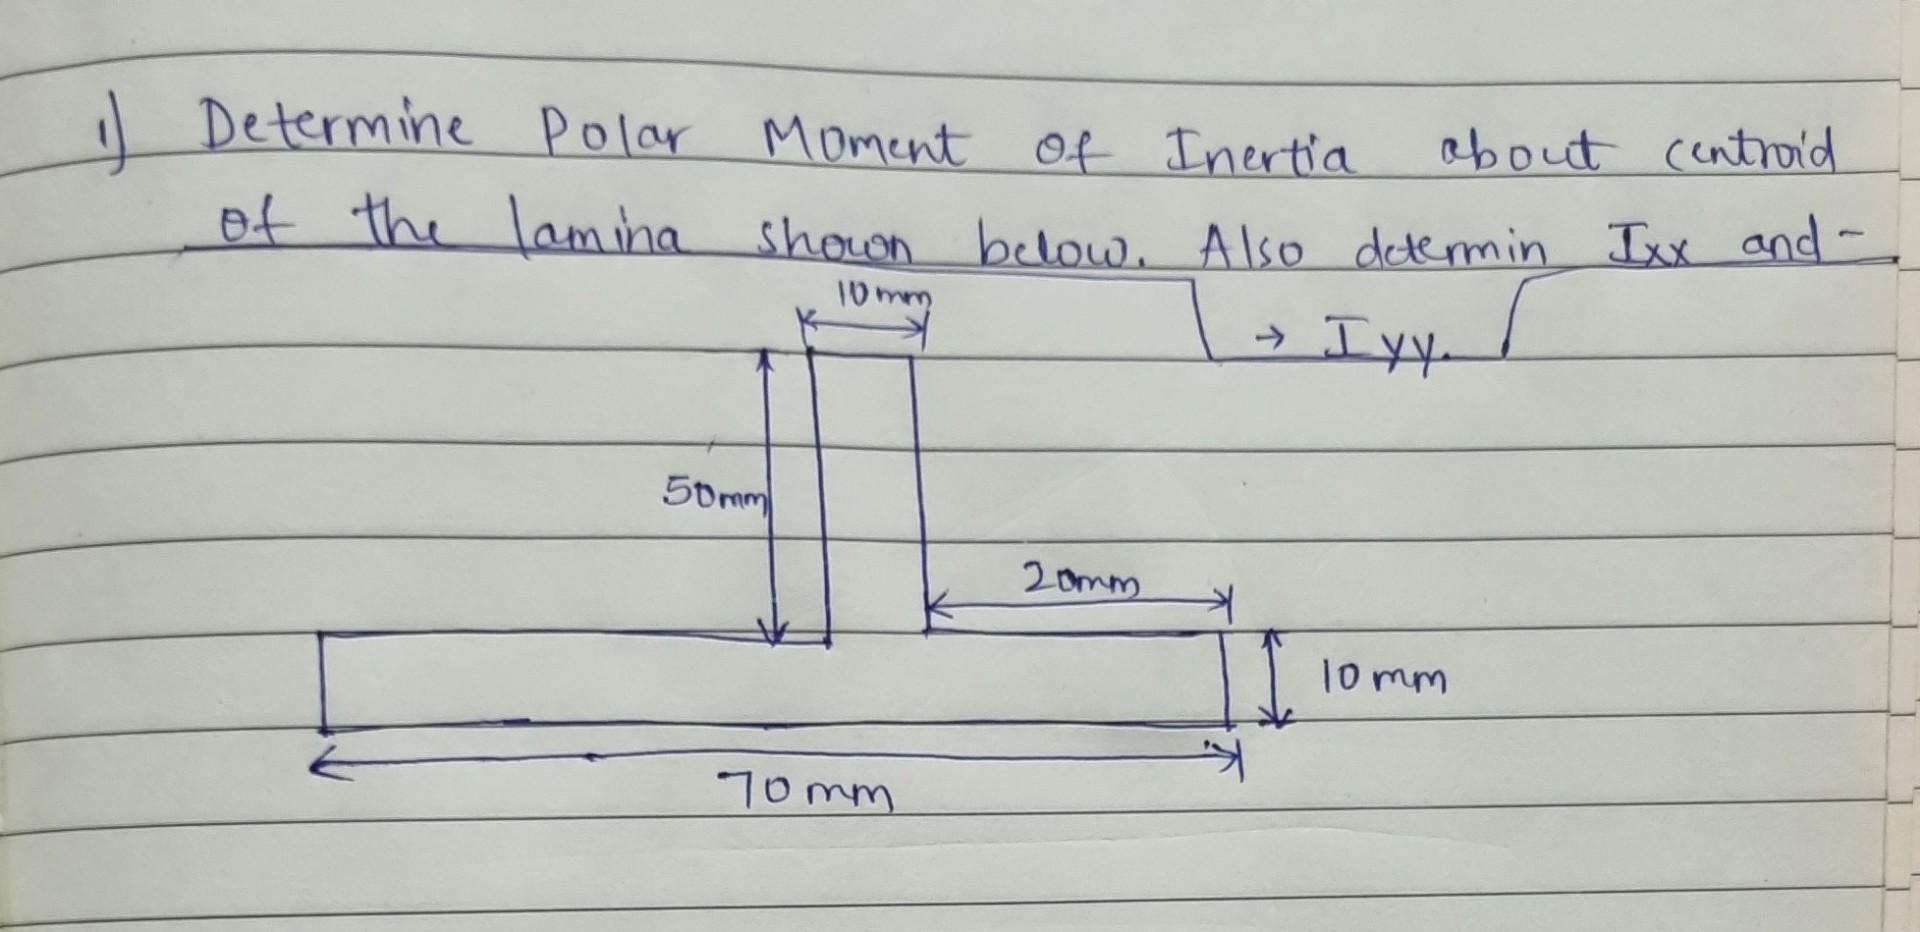 1) Determine Polar Moment of Inertia about centroid
of the lamina shown below. Also determin Ixx and -
→ Iyy.
10mm
50mm
20mm
10 mm
70 mm